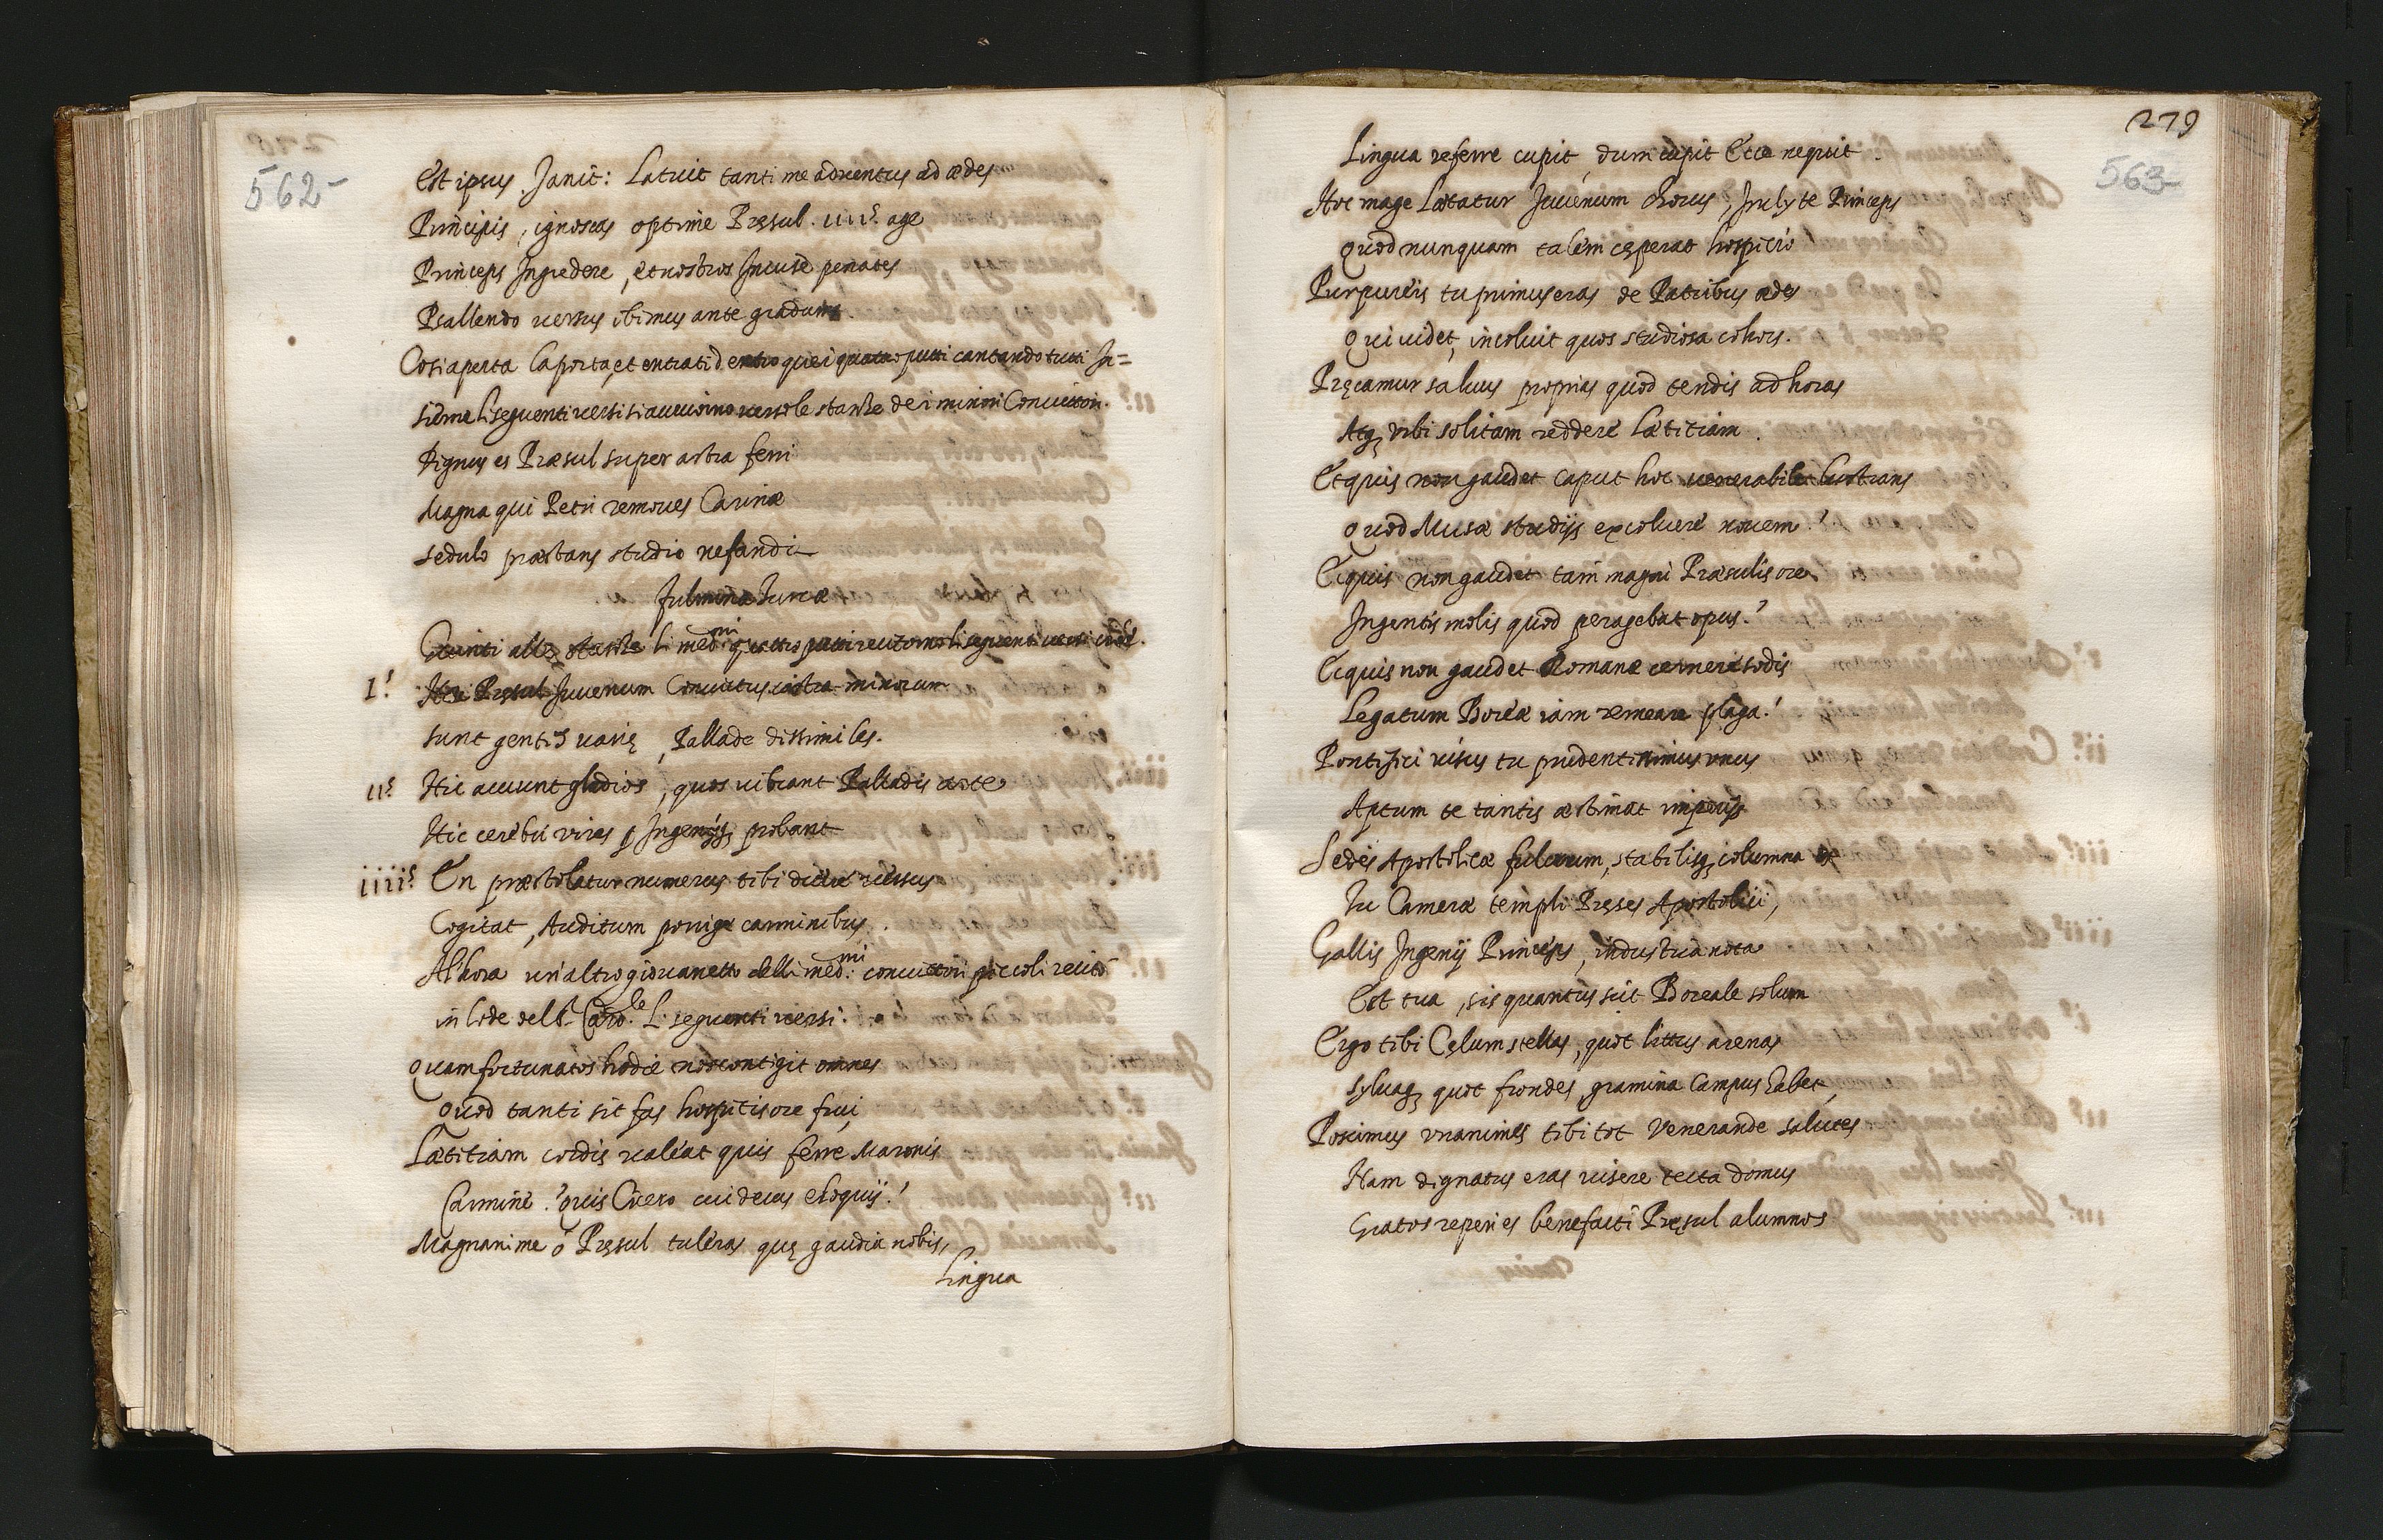 562
Est ipsus Janit: Latuit tanti me aduentus ad ædes
Principis, ignoscas optime Pręsul. iiii.s age
Princeps Ingredere, et nostros Inuise penates
Psallendo uersus ibimus ante gradum.
Cosi aperta la porta, et entrati dentro quei quattro putti cantando tutti In=
sieme li seguenti uersi si auuiorno uerso le stanze de i minori Conuittori.
Dignus es Præsul super astra ferri
Magna qui Petri remoues Carinæ
sedulo præstans studio nefandi
fulmina Turcæ
Giunti alle stanze li med.mi quattro putti recitorno li seguenti uersi cioè.
I.s Hic Pręsul Juuenum Conuictus castra minorum
sunt gentis uarię, Pallade dissimiles.
ii.s Hic acuunt gladios, quos uibrant Palladis arte
Hic cerebri vires p Ingenijq, probant
iiii.s En præstolatur numerus tibi dicere uersus
Cogitat, Auditum porrige carminibus.
Al'hora un'altro giouanetto delli med.mi conuittori piccoli recitò
in lode dell' Card.le Li seguenti uersi.
Quam fortunatos hodie nos contigit omnes
Quod tanti sit fas hospitis ore frui,
Lætitiam cordis ualeat quis ferre Maronis
Carmine? quis Cicero cui decus eloquij?
Magnanime ò Pręsul tuleras quę gaudia nobis,
Lingua
279
563
Lingua referre cupit, dum cupit Ecce nequit.
Hoc mage Lætatur Juuenum chorus, Inclyte Princeps
Quod nunquam talem cęperat hospicio
Purpureis tu primus eras de Patribus ædes
Qui uidet, incoluit quos studiosa cohors.
Pręcamur saluus proprias quod tendis ad horas
Atq, vrbi solitam reddere Lætitiam.
Ecquis non gaudet caput hoc uenerabile lustrans
Quod Musæ studijs excoluere nouem?
Ecquis non gaudet tam magni Præsulis ore
Ingentis molis quod peragebat opus?
Ecquis non gaudet Romanæ cernere sedis
Legatum Boreæ iam remeare plaga?
Pontifici uisus tu prudentissimus vnus
Aptum te tantis æstimat imperijs
Sedis Apostolicæ fulcrum, stabilisq, columna es
Tu Cameræ templi Pręses Apostolici,
Gallis Ingenij Princeps, industria nota
Est tua, sis quantus scit Boreale solum
Ergo tibi Cęlum stellas, quot littus arenas
syluaq, quot frondes, gramina Campus habet,
Poscimus vnanimes tibi tot Venerande salutes
Nam dignatus eras uisere tecta domus
Gratos reperies benefacti Pręsul alumnos